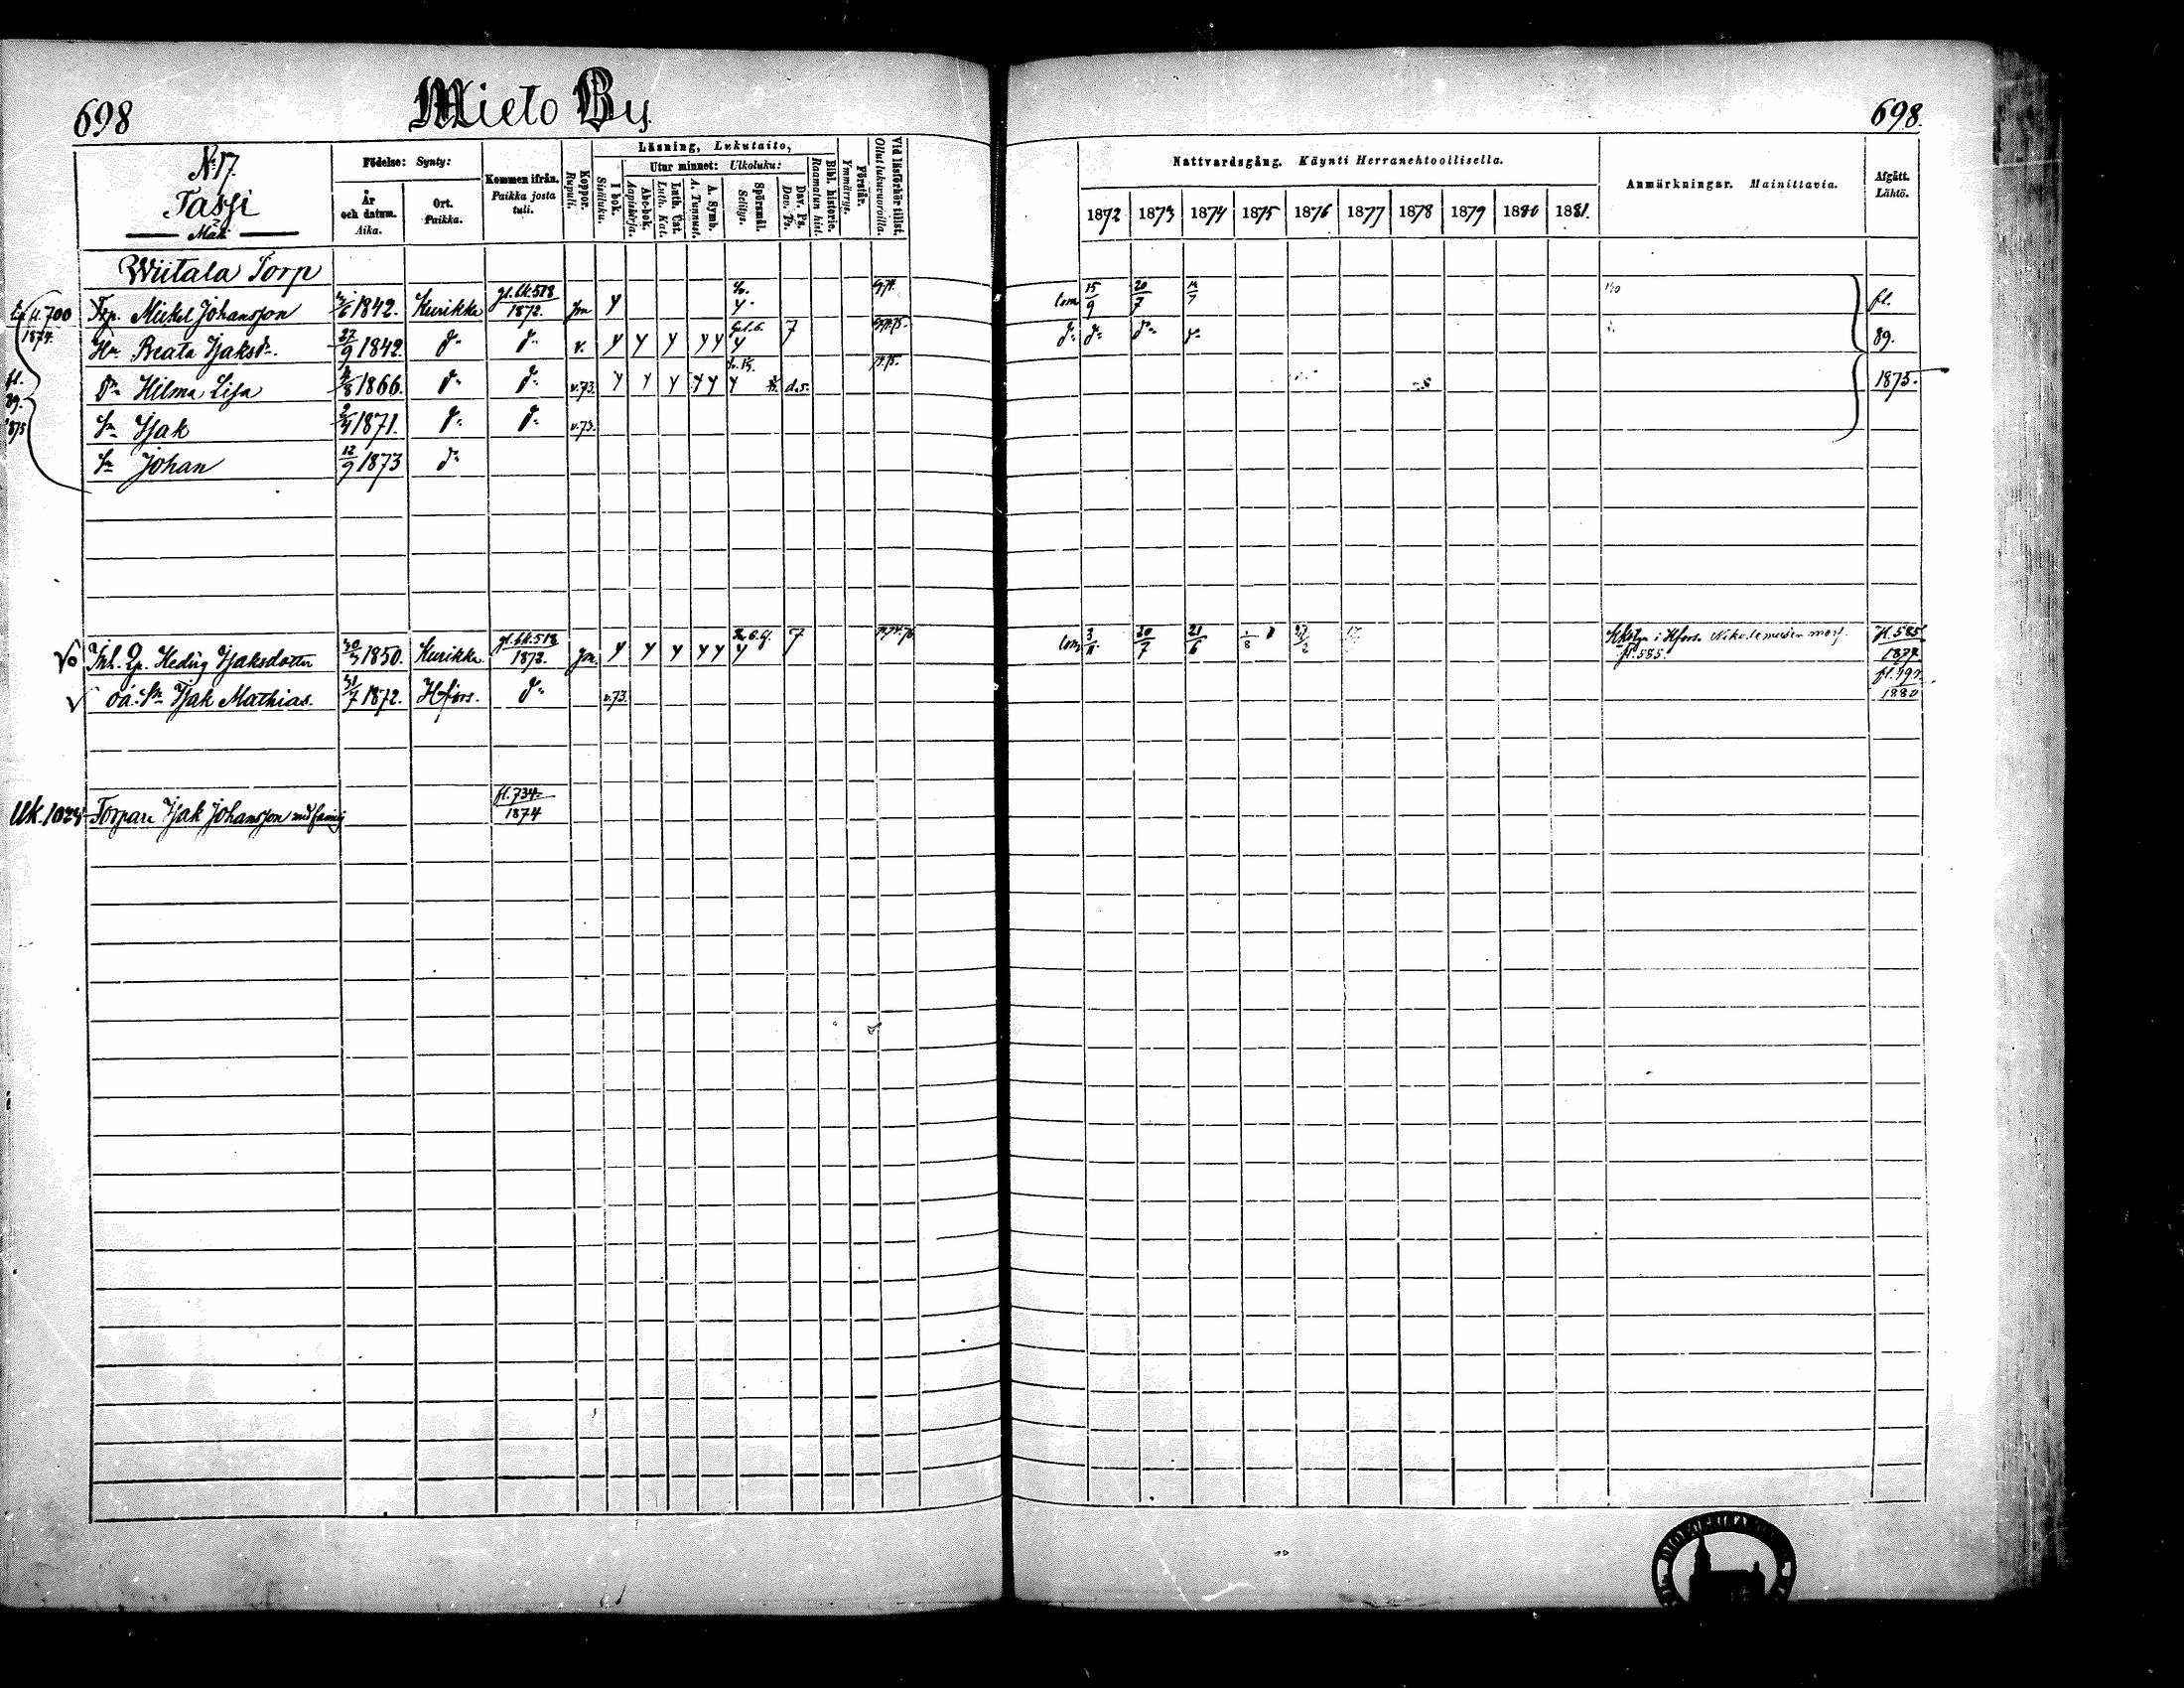 698
Mieto By
698.
N:o 17.
Tassi
Mäki
Födelse: Synty:
År och datum. Aika.
Ort. Paikka.
Kommen ifrån. Paikka josta tuli.
Koppor. Rupuli.
Läsning, Lukutaito,
I bok. Sisäluku.
Utur minnet: Ulkoluku:
Abc-bok. Aapiskirja.
Luth. Cat. Luth. Kat.
A. Symb. A. Tunnust.
Spörsmål. Selitys.
Dav. Ps. Dav. Ps.
Bibl. historie. Raamatun hist.
Förstår. Ymmärrys.
Vid läsförhör tillst. Ollut lukuvuoroilla.
Nattvardsgång. Käynti Herranehtoollisella.
1872 1873 1874 1875 1876 1877 1878 1879 1880 1881.
Anmärkningar. Mainittavia.
Afgått. Lähtö.
Wiitala Torp
fl. 700 1874. Torp. Mickel Johansson 1842. Kurikka gl. bk. 518 1872. y 15/9 20/7 fl.
Hu Beata Isaksdr. 27/9 1842. do do v. y y y y y y 7 do do do do 89.
Dr Hilma Lisa 1866. do do v.73. y y y y y y 1875.
fl. 89. 1875
Sn Isak 1871. do do v.73.
Sn Johan 12/9 1873 do
Inh. Qp. Hedvig Isaksdotter 30/3 1850. Kurikka gl. bk. 518 1872. y y y y y y 7 3/11 20/7 21/6 i Hfors. fl. 585.
oä. Sn Isak Mathias. 31/7 1872. Hfors. do v.73. 1880
Uk. 1024 Torpare Isak Johansson med familj fl. 734. 1874